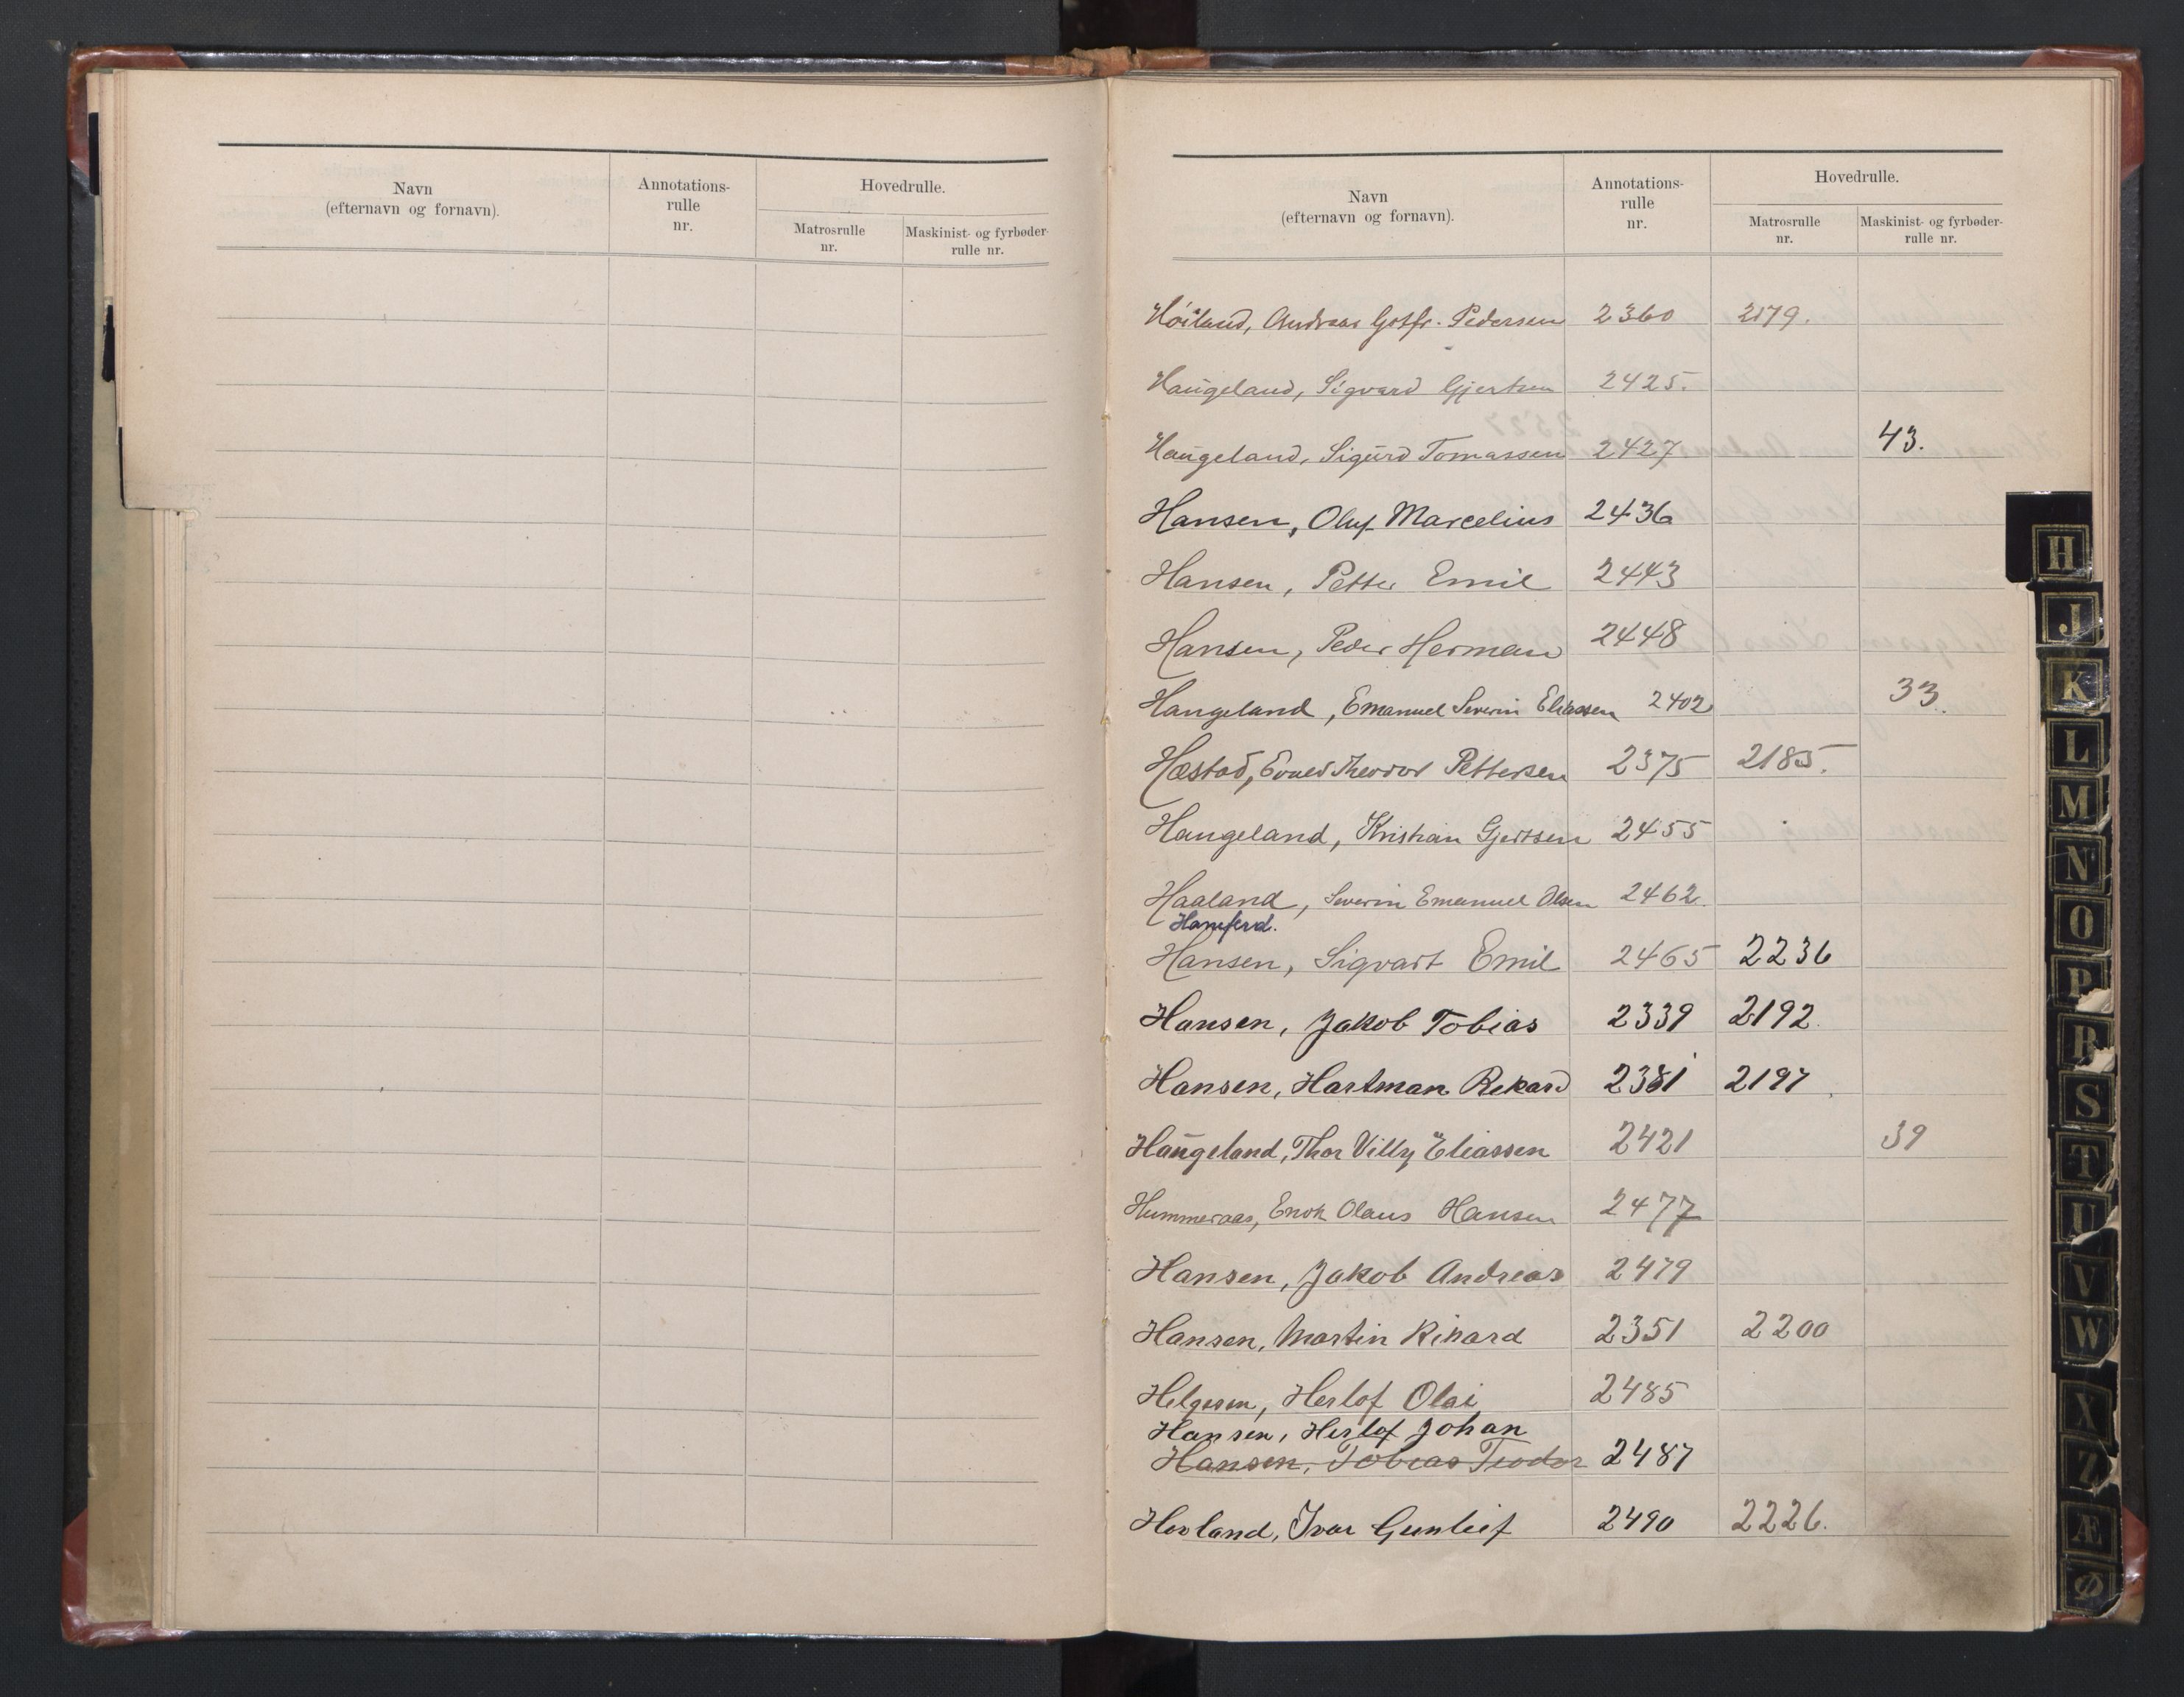 Navn
(efternavn og fornavn).
Annotations-
rulle
nr.
Hovedrulle.
Matrosrulle
nr.
Maskinist- og fyrbøder-
rulle nr.
Navn
(efternavn og fornavn).
Annotations-
rulle
nr.
Hovedrulle.
Matrosrulle
nr.
Maskinist- og fyrbøder-
rulle nr.
Höiland, Andreas Gotfr. Pedersen 2360 2179.
Haugeland, Sigvard Gjertsen 2425.
Haugeland, Sigurd Tomassen 2427 43.
Hansen, Oluf Marcelius 2436
Hansen, Petter Emil 2443
Hansen, Peder Herman 2448
Haugeland, Emanuel Severin Eliassen 2402 33.
Hæstad, Theodor Pettersen 2375 2185.
Haugeland, Kristian Gjertsen 2455
Haaland, Severin Emanuel Olsen 2462.
Hansen, Sigvart Emil 2465 2236
Hansen, Jakob Tobias 2339 2192.
Hansen, Hartman Rekard 2381 2197
Haugeland, Thor Villy Eliassen 2421 39
Hummeraas, Enok Olaus Hansen 2477
Hansen, Jakob Andreas 2479
Hansen, Martin Rikard 2351 2200
Helgesen, Herlof Olai 2485
Hansen, Herlof Johan
Hansen, Tobias Teodor 2487
Hovland, Ivar Gunleif 2490 2226.
H
J
K
L
M
N
O
P
R
S
T
U
V
W
X
Z
Æ
Ø